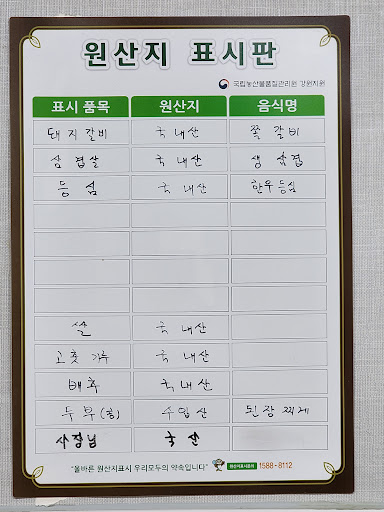 원산지 표시판
국립농산물품질관리원 강원지원
표시 품목 원산지 음식명
돼지갈비 국내산 쫄갈비
삼겹살 국내산 생삼겹
등심 국내산 한우등심
쌀 국내산
고춧가루 국내산
배추 국내산
두부(콩) 수입산 된장찌게
사장님 국산
"올바른 원산지표시 우리모두의 약속입니다" 원산지표시문의 1588-8112